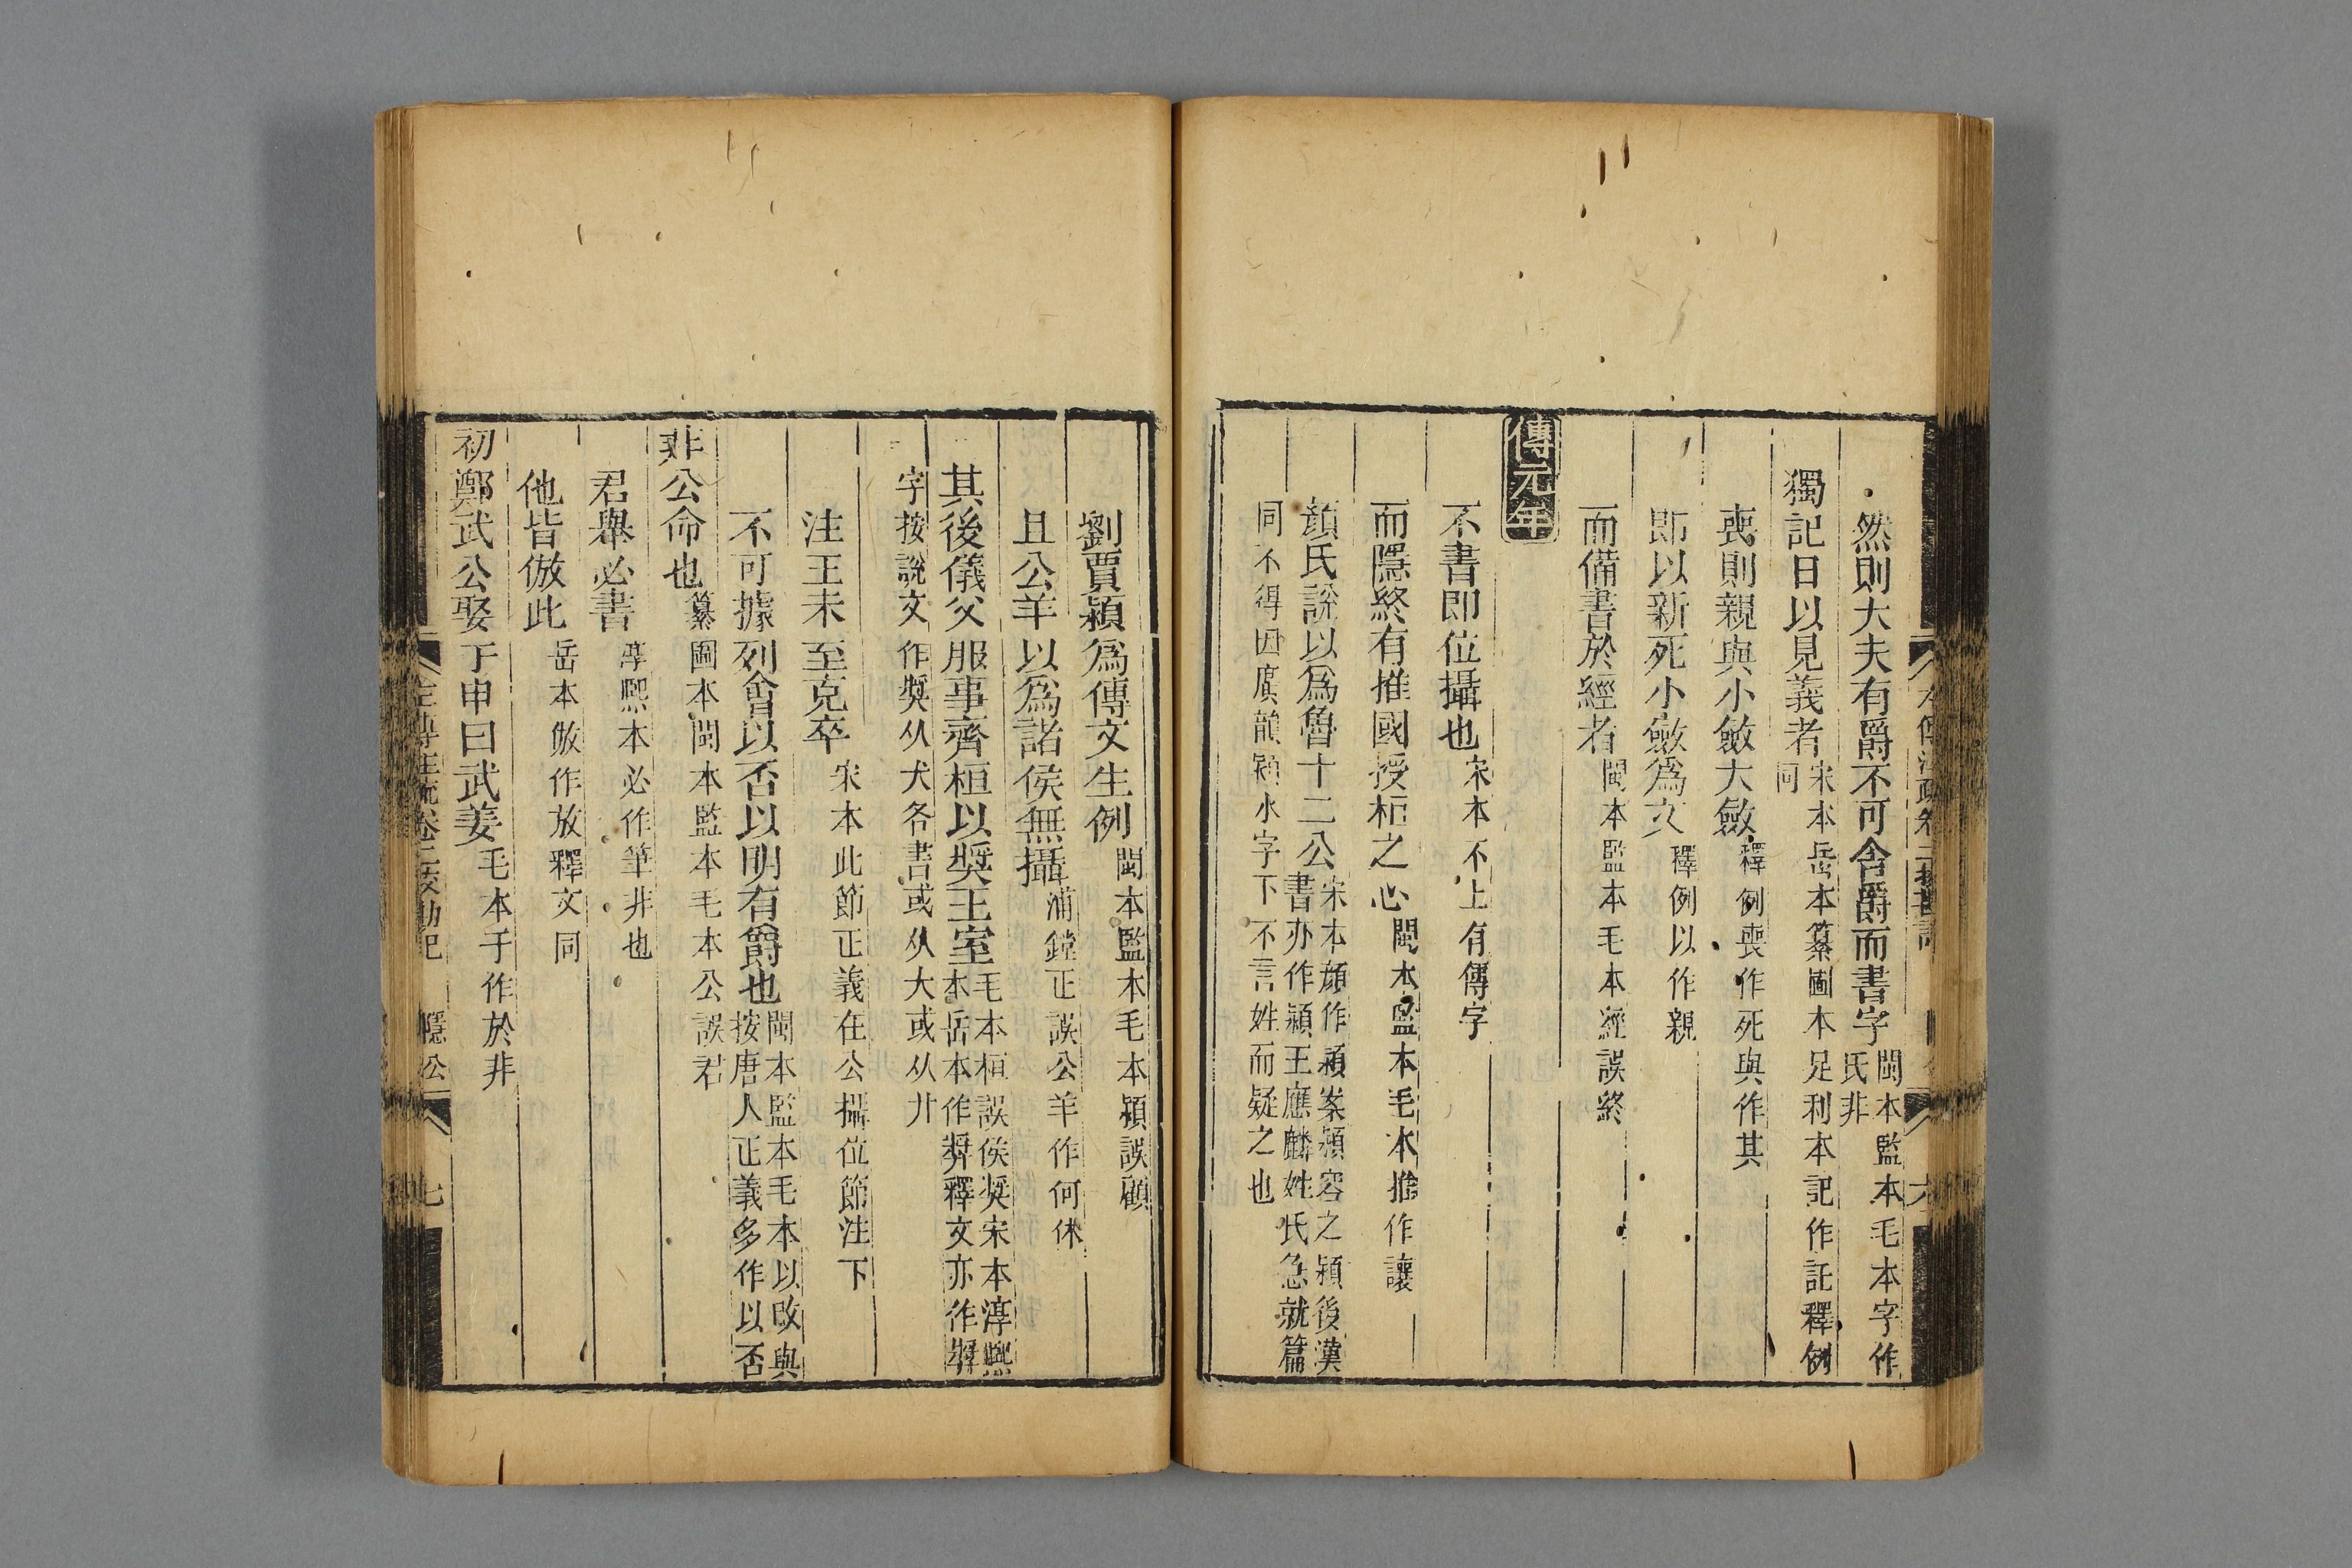 然則大夫有爵不可舍爵而書字閩本監本毛本字作氏非
獨記日以見義者宋本岳本纂圖本足利本記作託釋例同
喪則親與小斂大斂釋例喪作死與作其
即以新死小斂爲文釋例以作親
而備書於經者閩本監本毛本經誤終
傳元年
不書即位攝也宋本不上有傳字
而隱終有推國授桓之心閩本監本毛本推作讓
顏氏說以爲魯十二公宋本顏作潁案潁容之潁後漢書亦作潁王應麟姓氏急就篇
同不得因虞韻潁水字下不言姓而疑之也
劉賈潁爲傳文生例閩本監本毛本潁誤顧
且公羊以爲諸侯無攝浦鏜正誤公羊作何休
其後儀父服事齊桓以奬王室毛本桓誤侯奬宋本淳熙本岳本作㢡釋文亦作㢡
字按說文作奬从犬各書或从大或从廾
注王未至克卒宋本此節正義在公攝位節注下
不可據列會以否以明有爵也閩本監本毛本以改與按唐人正義多作以否
非公命也纂圖本閩本監本毛本公誤君
君舉必書淳熙本必作筆非也
他皆倣此岳本倣作放釋文同
初鄭武公娶于申曰武姜毛本于作於非
左傳注疏卷二校勘記 隱公 七